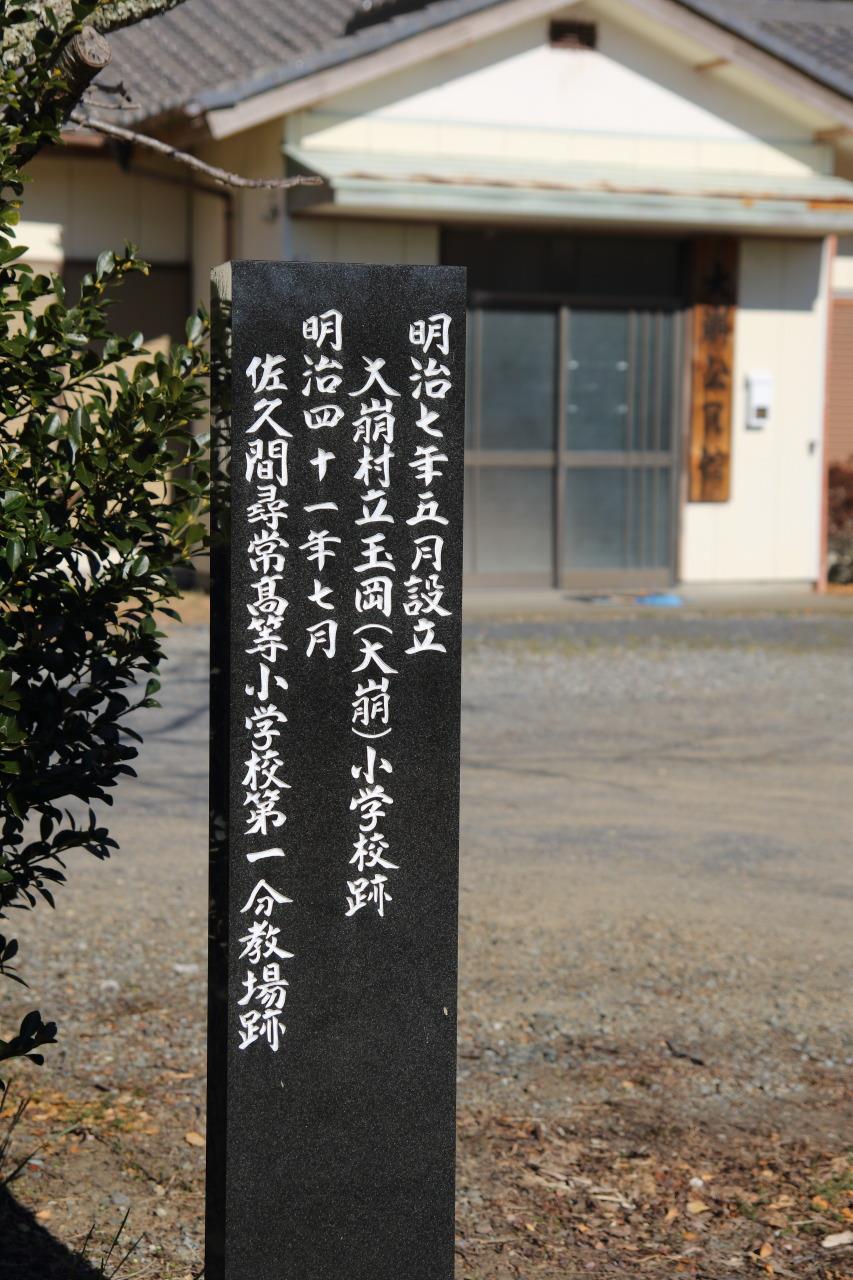 明治七年五月設立
大崩村立玉岡(大崩)小学校跡
明治四十一年七月
佐久間尋常髙等小学校第一分教場跡
大崩公民館